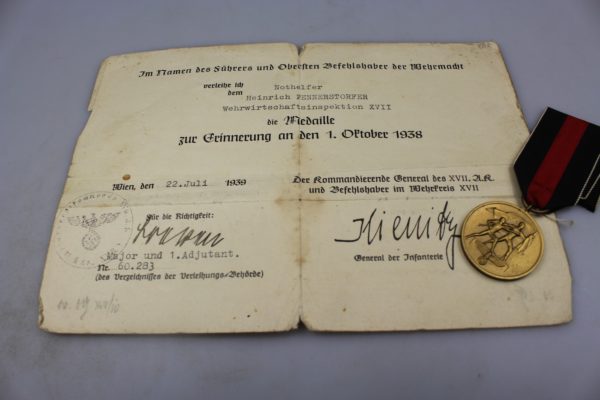 Im Namen des Führers und Obersten Befehlshaber der Wehrmacht
verleihe ich
dem
Nothelfer
Heinrich PENNERSTORFER
Wehrwirtschaftsinspektion XVII
die Medaille
zur Erinnerung an den 1. Oktober 1938
Wien, den 22.Juli 1939
Der Kommandierende General des XVII. A.K.
und Befehlshaber im Wehrkreis XVII
Für die Richtigkeit:
Kienitz
Major und 1.Adjutant.
General der Infanterie
Nr. 60.283
(des Verzeichnisses der Verleihungs-Behörde)